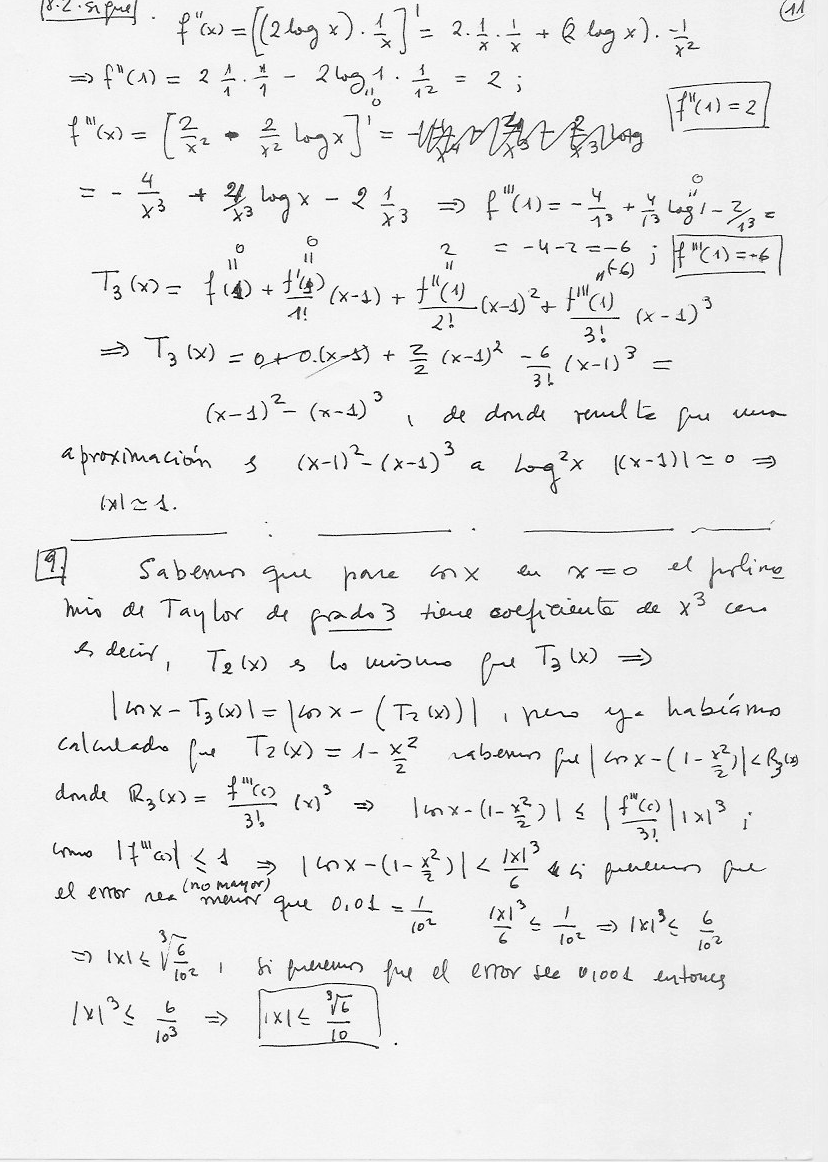 11
8.2. sigue. f''(x) = [(2 log x) · 1/x]' = 2 · 1/x · 1/x + (2 log x) · -1/x²
⇒ f''(1) = 2 1/1 · 1/1 - 2 log 1 · 1/1² = 2 ;
0
f''(1) = 2
f'''(x) = [2/x² - 2/x² log x]' =
= - 4/x³ + 4/x³ log x - 2 1/x³ ⇒ f'''(1) = - 4/1³ + 4/1³ log 1 - 2/1³ =
0
= -4-2 = -6 ; f'''(1) = -6
0 0 2 (-6)
T₃(x) = f(1) + f'(1)/1! (x-1) + f''(1)/2! (x-1)² + f'''(1)/3! (x-1)³
⇒ T₃(x) = 0 + 0·(x-1) + 2/2 (x-1)² - 6/3! (x-1)³ =
(x-1)² - (x-1)³ , de donde resulta que una
aproximación es (x-1)² - (x-1)³ a log²x |(x-1)| ≃ 0 ⇒
|x| ≃ 1.
9. Sabemos que para cos x en x=0 el polino
mio de Taylor de grado 3 tiene coeficiente de x³ cero
es decir, T₂(x) es lo mismo que T₃(x) ⇒
|cos x - T₃(x)| = |cos x - (T₂(x))| , pero ya habíamos
calculado que T₂(x) = 1 - x²/2 sabemos que |cos x - (1 - x²/2)| < R₃(x)
donde R₃(x) = f'''(c)/3! (x)³ ⇒ |cos x - (1 - x²/2)| ≤ |f'''(c)/3!| |x|³ ;
como |f'''(c)| ≤ 1 ⇒ |cos x - (1 - x²/2)| < |x|³/6 si queremos que
(no mayor)
el error sea menor que 0,01 = 1/10² |x|³/6 ≤ 1/10² ⇒ |x|³ ≤ 6/10²
⇒ |x| ≤ ∛(6/10²) , si queremos que el error sea 0,001 entonces
|x|³ ≤ 6/10³ ⇒ |x| ≤ ∛6/10 .